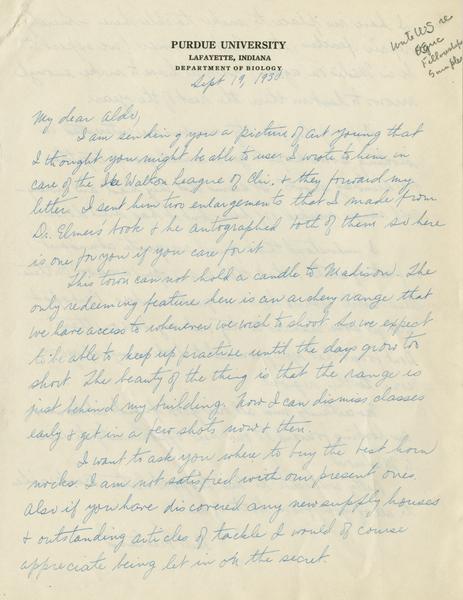 PURDUE UNIVERSITY
LAFAYETTE, INDIANA
DEPARTMENT OF BIOLOGY
Sept 19, 1930
write WS re
Fellowship
My dear Aldo,
I am sending you a picture of Art Young that
I thought you might be able to use. I wrote to him in
care of the Ike Walton League of Chi. & they forward my
letter. I sent him two enlargements that I made from
Dr. Elmer's book & he autographed both of them so here
is one for you if you care for it
This town can not hold a candle to Madison. The
only redeeming feature here is an archery range that
we have access to whenever we wish to shoot so we expect
to be able to keep up practice until the days grow too
short. The beauty of the thing is that the range is
just behind my building. Now I can dismiss classes
early & get in a few shots now & then.
I want to ask you where to buy the best horn
nocks. I am not satisfied with our present ones.
Also if you have discovered any new supply houses
& outstanding articles of tackle I would of course
appreciate being let in on the secret.